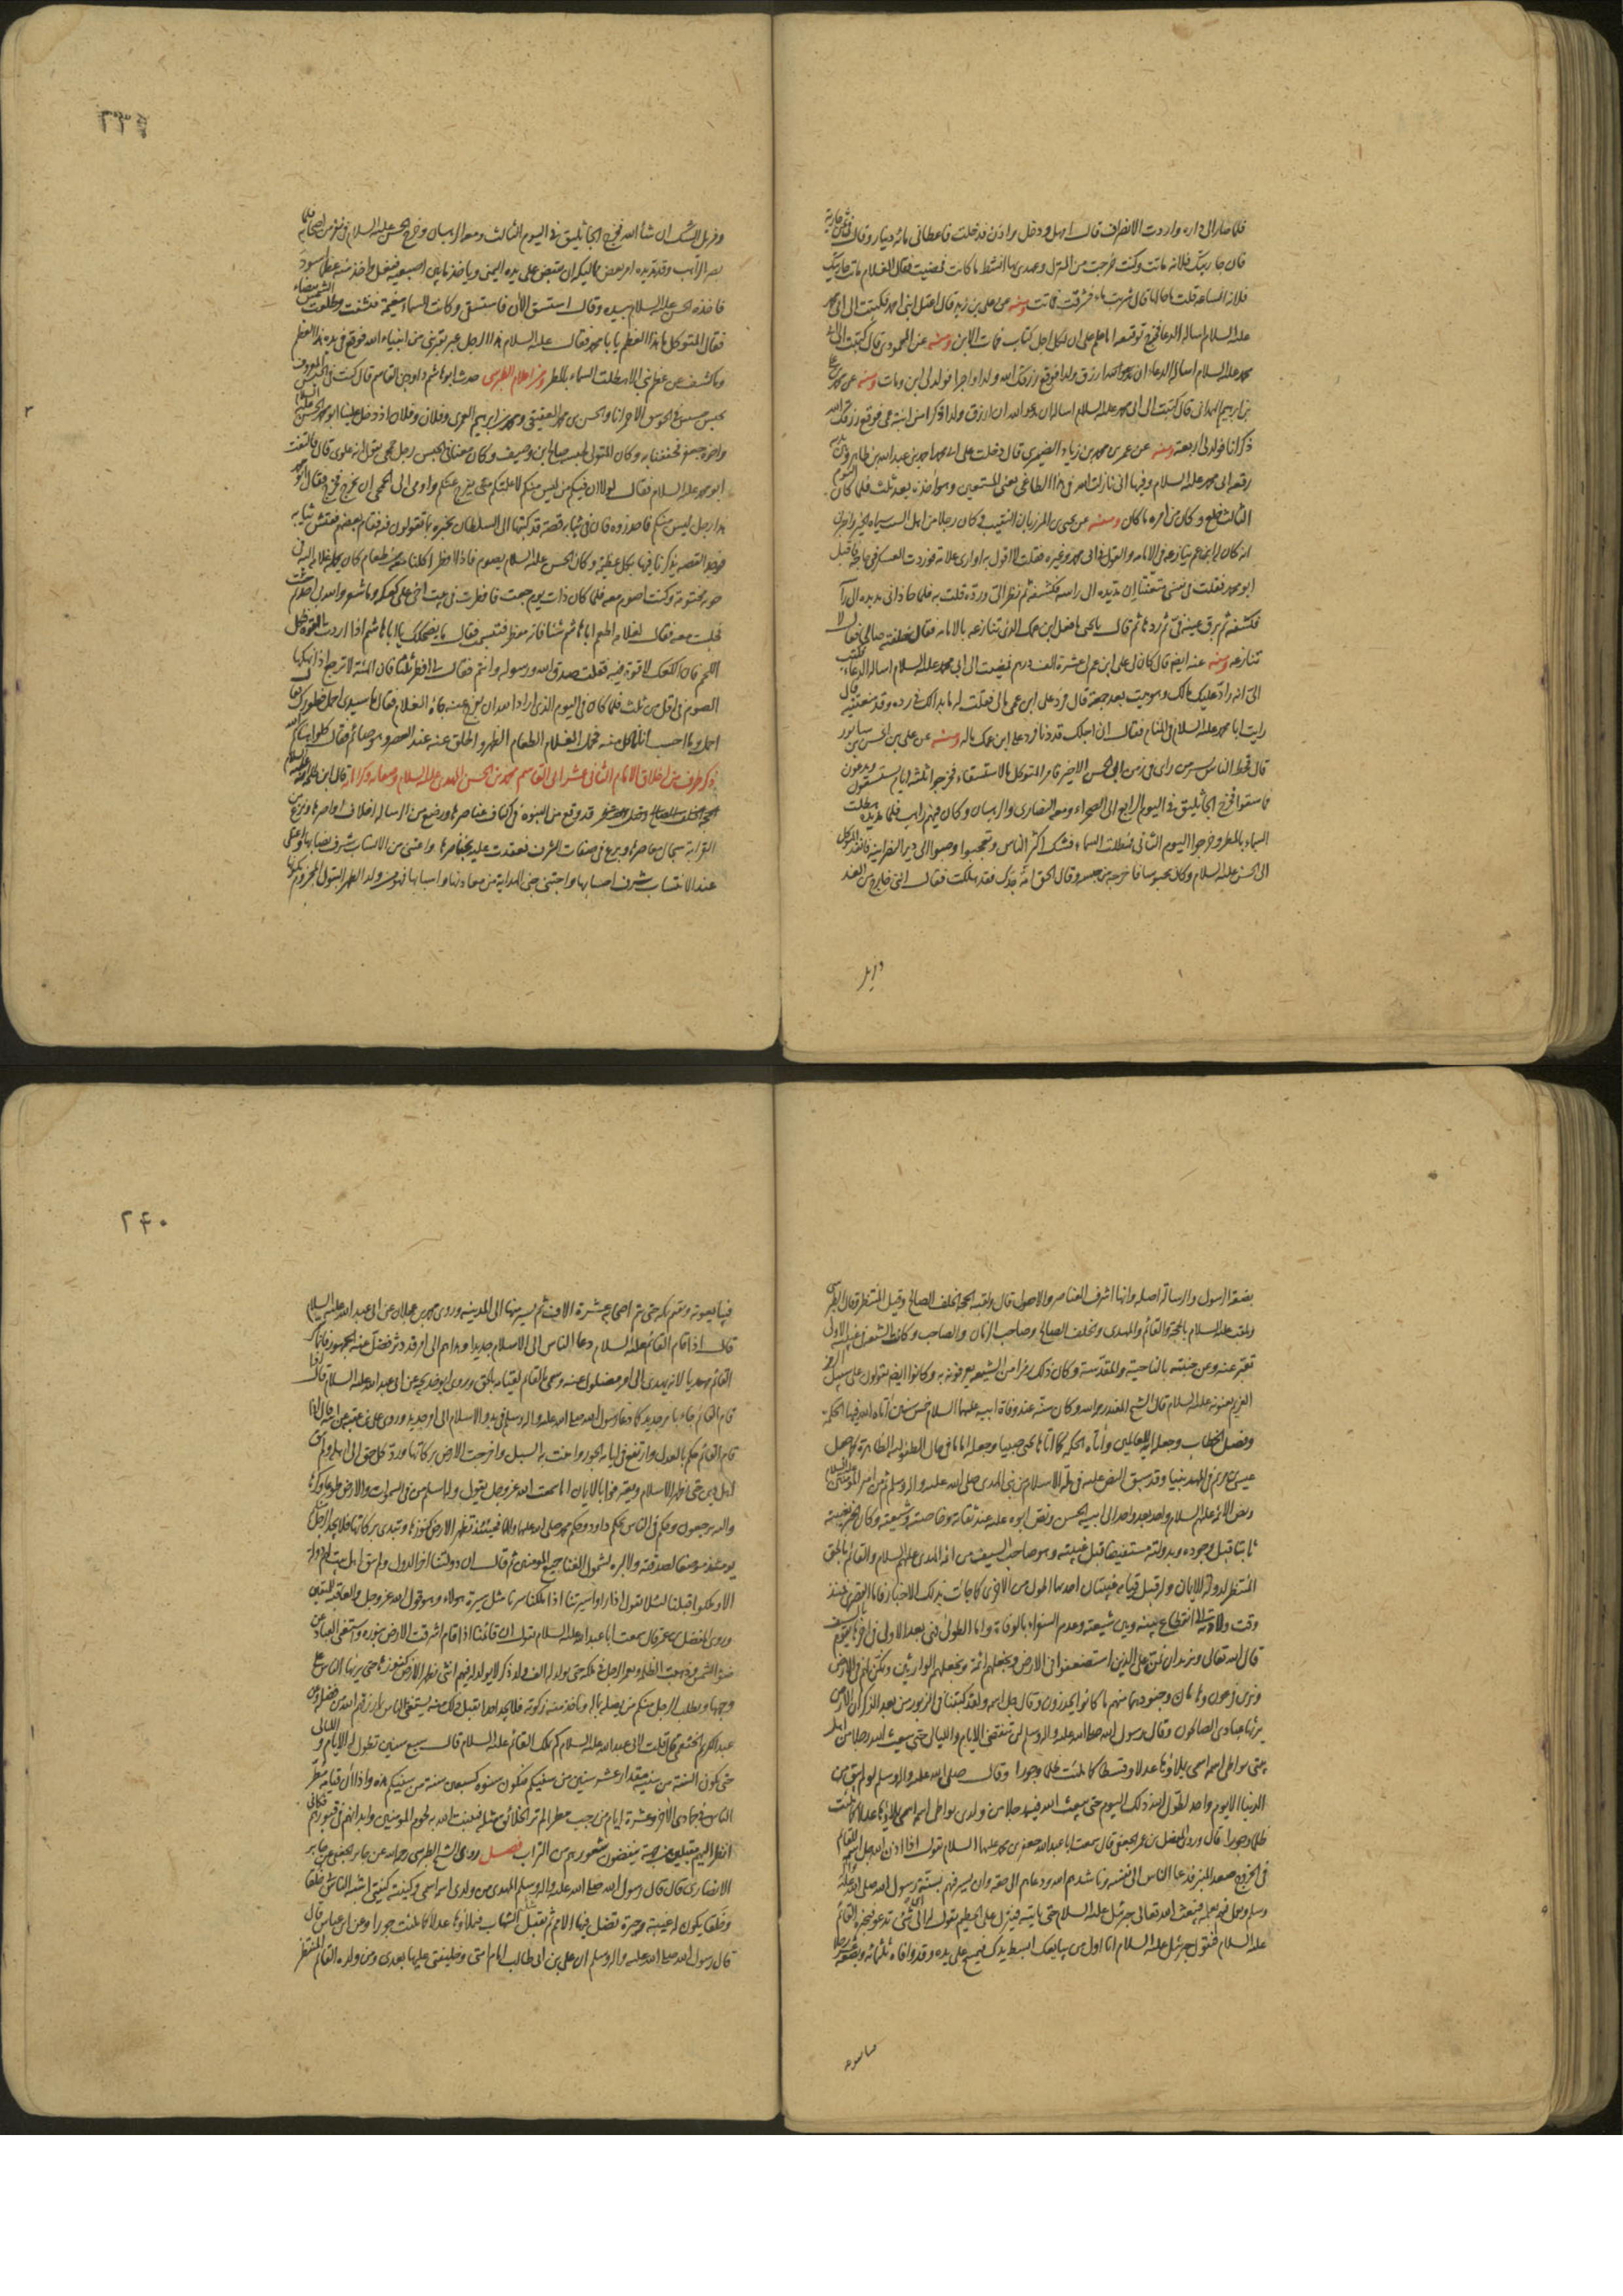 فلما صار الى داره واردت الانصراف قال امهل ودخل واذن فدخلت فاعطانى مائة دينار وقال
فان جاريتك فلانة ماتت وكنت خرجت من المنزل وعهدى بها انشط ما كانت فمضيت فقال الغلام ماتت جاريتك
فلانة الساعة قلت ما حالها قال شربت ماء فشرقت فماتت ومنه عن على بن زيد قال اعتل ابنى احمد فكتبت الى ابى محمد
عليه السلام اساله الدعا فخرج توقيعه اما علم على ان لكل اجل كتاب فمات الابن ومنه عن المحمودى قال كتبت الى ابى
محمد عليه السلام اساله الدعاء ان ارزق ولدا فوقع رزقك الله ولدا واجرا فولد لى ابن ومات ومنه عن محمد بن على
بن ابراهيم الهمدانى قال كتبت الى ابى محمد عليه السلام اساله ان يدعو الله ان ارزق ولدا ذكرا من ابنة عمى فوقع رزقك الله
ذكرانا فولد لى اربعة ومنه عن عمر بن محمد بن زياد الصيمرى قال دخلت على ابى احمد بن عبدالله بن طاهر وبين يديه
رقعة ابى محمد عليه السلام وفيها انى نازلت الله فى هذا الطاغى يعنى المستعين وهو آخذه بعد ثلث فلما كان اليوم
الثالث خلع وكان من امره ما كان ومنه عن يحيى بن المرزبان
انه كان له ابن عم ينازعه فى الامامة والقول فى ابى محمد وغيره فقلت لا اقول به او ارى علامة فوردت العسكر فى حاجة فاقبل
ابو محمد فقلت فى نفسى متعنتا ان مد يده الى راسه فكشفه ثم نظر الى ورده قلت به فلما حاذانى مد يده الى راسه
فكشفه ثم برق عينيه فى ثم ردها ثم قال يا يحيى ما فعل ابن عمك الذى تنازعه بالامامة فقال خلفته صالحا فقال لا
تنازعه ومنه عنه ايضا قال كان لى على ابن عم لى عشرة الف درهم فكتبت الى ابى محمد عليه السلام اساله الدعاء فكتب
الى انه راد عليك مالك وهو ميت بعد جمعة قال فرد على ابن عمى مالى فقلت له ما بدا لك فى رده وقد منعتنيه قال
رايت ابا محمد عليه السلام فى المنام فقال ان اجلك قد دنا فرد على ابن عمك ماله ومنه عن على بن الحسن بن سابور
قال قحط الناس بسر من راى فى زمن ابى الحسن الاخير فامر المتوكل بالاستسقاء فخرجوا ثلثة ايام يستسقون ويدعون
فما سقوا فخرج الجاثليق فى اليوم الرابع الى الصحراء ومعه النصارى والرهبان وكان فيهم راهب فلما مد يده هطلت
السماء بالمطر وخرجوا اليوم الثانى فهطلت السماء فشك اكثر الناس وتعجبوا وصبوا الى دين النصرانية فانفذ المتوكل
الى الحسن عليه السلام وكان محبوسا فاخرجه من حبسه وقال الحق امة جدك فقد هلكت فقال انى خارج من الغد
ومزيل الشك ان شاء الله فخرج الجاثليق فى اليوم الثالث ومعه الرهبان وخرج الحسن عليه السلام فى نفر من اصحابه فلما
بصر الراهب وقد مد يده امر بعض مماليكه ان يقبض على يده اليمنى وياخذ ما بين اصبعيه ففعل واخذ منه عظما اسود
فاخذه الحسن عليه السلام بيده وقال استسق الآن فاستسقى وكانت السماء مغيمة فتقشعت وطلعت الشمس بيضاء
فقال المتوكل ما هذا العظم يا با محمد فقال عليه السلام هذا الرجل عبر بقبر نبى من انبياء الله فوقع فى يده هذا العظم
وما كشف عن عظم نبى الا هطلت السماء بالمطر ومن اعلام الطبرسى حدث ابو هاشم داود بن القاسم قال كنت فى الحبس المعروف
ابو محمد عليه السلام فقال لولا ان فيكم من ليس منكم لاعلمتكم متى يفرج عنكم واومى الى الجمحى ان يخرج فخرج فقال ابو محمد
هذا رجل ليس منكم فاحذروه فان فى ثيابه قصة قد كتبها الى السلطان يخبره بما تقولون فيه فقام بعضهم ففتش ثيابه
فوجد القصة يذكرنا فيها بكل عظيمة وكان الحسن عليه السلام يصوم فاذا افطر اكلنا معه من طعام كان يحمله غلامه اليه فى
جونة مختومة وكنت اصوم معه فلما كان ذات يوم ضعفت فافطرت فى بيت اخر على كعكة وما شعر والله بى احد ثم جئت
فجلست معه فقال لغلامه اطعم ابا هاشم شيئا فانه مفطر فتبسمت فقال ما يضحكك يا ابا هاشم اذا اردت القوة فكل
اللحم فان الكعك لا قوة فيه فقلت صدق الله ورسوله وانتم فقال لى افطر ثلثا فان المنة لا ترجع اذا نهكها
الصوم فى اقل من ثلث فلما كان فى اليوم الذى اراد الله ان يفرج عنه جاءه الغلام فقال يا سيدى احمل فطورك قال
احمل وما احسب انا ناكل منه فحمل الغلام الطعام الظهر واطلق عنه عند العصر وهو صائم فقال كلوا هناكم الله
ذكر طرف من اخلاق الامام الثانى عشر ابى القاسم محمد بن الحسن المهدى عليه السلام وصفاته وكراماته قال ابن طلحة
عند الانتساب شرف احسابها واجتنى جنى الهداية من معادنها واسبابها فهو من ولد الطهر البتول المجزوم بكونها
بضعة الرسول والرسالة اصله وانها اشرف العناصر والاصول قال ولقبه الحجة والخلف الصالح وقيل المنتظر وقال الطبرسى
ويلقب عليه السلام بالحجة والقائم والمهدى والخلف الصالح وصاحب الزمان والصاحب وكانت الشيعة فى غيبته الاولى
تعبر عنه وعن غيبته بالناحية المقدسة وكان ذلك رمزا من الشيعة يعرفونه به وكانوا ايضا يقولون على سبيل الرمز
الغريم يعنونه عليه السلام قال الشيخ المفيد رحمه الله وكان سنه عند وفاة ابيه عليهما السلام خمس سنين آتاه الله فيها الحكمة
وفصل الخطاب وجعله آية للعالمين وآتاه الحكمة كما آتاها يحيى صبيا وجعله اماما فى حال الطفولية الظاهرة كما جعل
عيسى بن مريم فى المهد نبيا وقد سبق النص عليه فى ملة الاسلام من نبى الهدى صلى الله عليه واله وسلم ثم من امير المؤمنين عليه السلام
ونص الائمة عليهم السلام واحدا بعد واحد الى ابيه الحسن ونص ابوه عليه عند ثقاته وخاصته وشيعته وكان الخبر بغيبته
ثابتا قبل وجوده وبدولته مستفيضا قبل غيبته وهو صاحب السيف من ائمة الهدى عليهم السلام والقائم بالحق
المنتظر لدولة الايمان وله قبل قيامه غيبتان احدهما اطول من الاخرى كما جائت بذلك الاخبار فاما القصرى منذ
وقت ولادته الى انقطاع السفارة بينه وبين شيعته وعدم السفراء بالوفاة واما الطولى فهى بعد الاولى فى آخرها يقوم بالسيف
قال الله تعالى ونريد ان نمن على الذين استضعفوا فى الارض ونجعلهم ائمة ونجعلهم الوارثين ونمكن لهم فى الارض
ونرى فرعون وهامان وجنودهما منهم ما كانوا يحذرون وقال جل اسمه ولقد كتبنا فى الزبور من بعد الذكر ان الارض
يرثها عبادى الصالحون وقال رسول الله صلى الله عليه واله وسلم لن تنقضى الايام والليالى حتى يبعث الله رجلا من اهل
بيتى يواطى اسمه اسمى يملاؤها عدلا وقسطا كما ملئت ظلما وجورا وقال صلى الله عليه واله وسلم لو لم يبق من
الدنيا الا يوم واحد لطول الله ذلك اليوم حتى يبعث الله فيه رجلا من ولدى يواطى اسمه اسمى يملاؤها عدلا كما ملئت
ظلما وجورا قال وروى المفضل بن عمر الجعفى قال سمعت ابا عبدالله جعفر بن محمد عليهما السلام يقول اذا اذن الله جل اسمه للقائم
فى الخروج صعد المنبر فدعا الناس الى نفسه وناشدهم الله ودعاهم الى حقه وان يسير فيهم بسنة رسول الله صلى الله عليه واله
وسلم ويعمل فيهم بعمله فيبعث الله تعالى جبرئيل عليه السلام حتى ياتيه فينزل على الحطيم يقول له الى اى شئ تدعو فيخبره القائم
عليه السلام فيقول جبرئيل عليه السلام انا اول من يبايعك ابسط يدك فيمسح على يده وقد وافاه ثلثمائة وبضعة عشر رجلا
٢٤٠
فيبايعونه ويقيم بمكة حتى يتم اصحابه عشرة الاف ثم يسير منها الى المدينة وروى محمد بن عجلان عن ابى عبدالله عليه السلام
قال اذا قام القائم عليه السلام دعا الناس الى الاسلام جديدا وهداهم الى امر قد دثر فضل عنه الجمهور وانما سمى
القائم مهديا لانه يهدى الى امر مضلول عنه وسمى بالقائم لقيامه بالحق وروى ابو خديجة عن ابى عبدالله عليه السلام قال اذا
قام القائم جاء بامر جديد كما دعا رسول الله صلى الله عليه واله وسلم فى بدو الاسلام الى امر جديد وروى على بن عقبة عن ابيه قال اذا
قام القائم حكم بالعدل وارتفع فى ايامه الجور وامنت به السبل واخرجت الارض بركاتها ورد كل حق الى اهله ولم يبق
اهل دين حتى يظهر الاسلام ويعترفوا بالايمان اما سمعت الله عز وجل يقول وله اسلم من فى السموات والارض طوعا وكرها
واليه يرجعون وحكم فى الناس بحكم داود وحكم محمد صلى الله عليهما والهما فحينئذ تظهر الارض كنوزها وتبدى بركاتها فلا يجد الرجل منكم
يومئذ موضعا لصدقته ولا لبره لشمول الغنا جميع المؤمنين ثم قال ان دولتنا اخر الدول ولم يبق اهل بيت لهم دولة
الا ملكوا قبلنا لئلا يقولوا اذا راوا سيرتنا اذا ملكنا سرنا مثل سيرة هؤلاء وهو قول الله عز وجل والعاقبة للمتقين
وروى المفضل بن عمر قال سمعت ابا عبدالله عليه السلام يقول ان قائمنا اذا قام اشرقت الارض بنوره واستغنى العباد عن
ضوء الشمس وذهبت الظلمة ويعمر الرجل فى ملكه حتى يولد له الف ولد ذكر لا يولد له فيهم انثى وتظهر الارض كنوزها حتى يريها الناس على
وجهها ويطلب الرجل منكم من يصله بماله وياخذ منه زكوته فلا يجد احدا يقبل ذلك منه يستغنى الناس بما رزقهم الله من فضله وعن
عبدالكريم الخثعمى قال قلت لابى عبدالله عليه السلام كم يملك القائم عليه السلام قال سبع سنين تطول له الايام والليالى
حتى تكون السنة من سنيه مقدار عشر سنين من سنيكم فتكون سنوه كسبعين سنة من سنيكم هذه واذا آن قيامه مطر
الناس فى جمادى الآخرة وعشرة ايام من رجب مطرا لم تر الخلائق مثله فينبت الله به لحوم المؤمنين وابدانهم فى قبورهم فكانى
انظر اليهم مقبلين من جهينة ينفضون شعورهم من التراب فصل روى الشيخ الطبرسى رحمه الله عن جابر الجعفى عن جابر
الانصارى قال قال رسول الله صلى الله عليه واله وسلم المهدى من ولدى اسمه اسمى وكنيته كنيتى اشبه الناس بى خلقا
وخلقا يكون له غيبة وحيرة تضل فيها الامم ثم يقبل كالشهاب فيملاؤها عدلا كما ملئت جورا وعن ابن عباس قال
قال رسول الله صلى الله عليه واله وسلم ان على بن ابى طالب امام امتى وخليفتى عليها بعدى ومن ولده القائم المنتظر